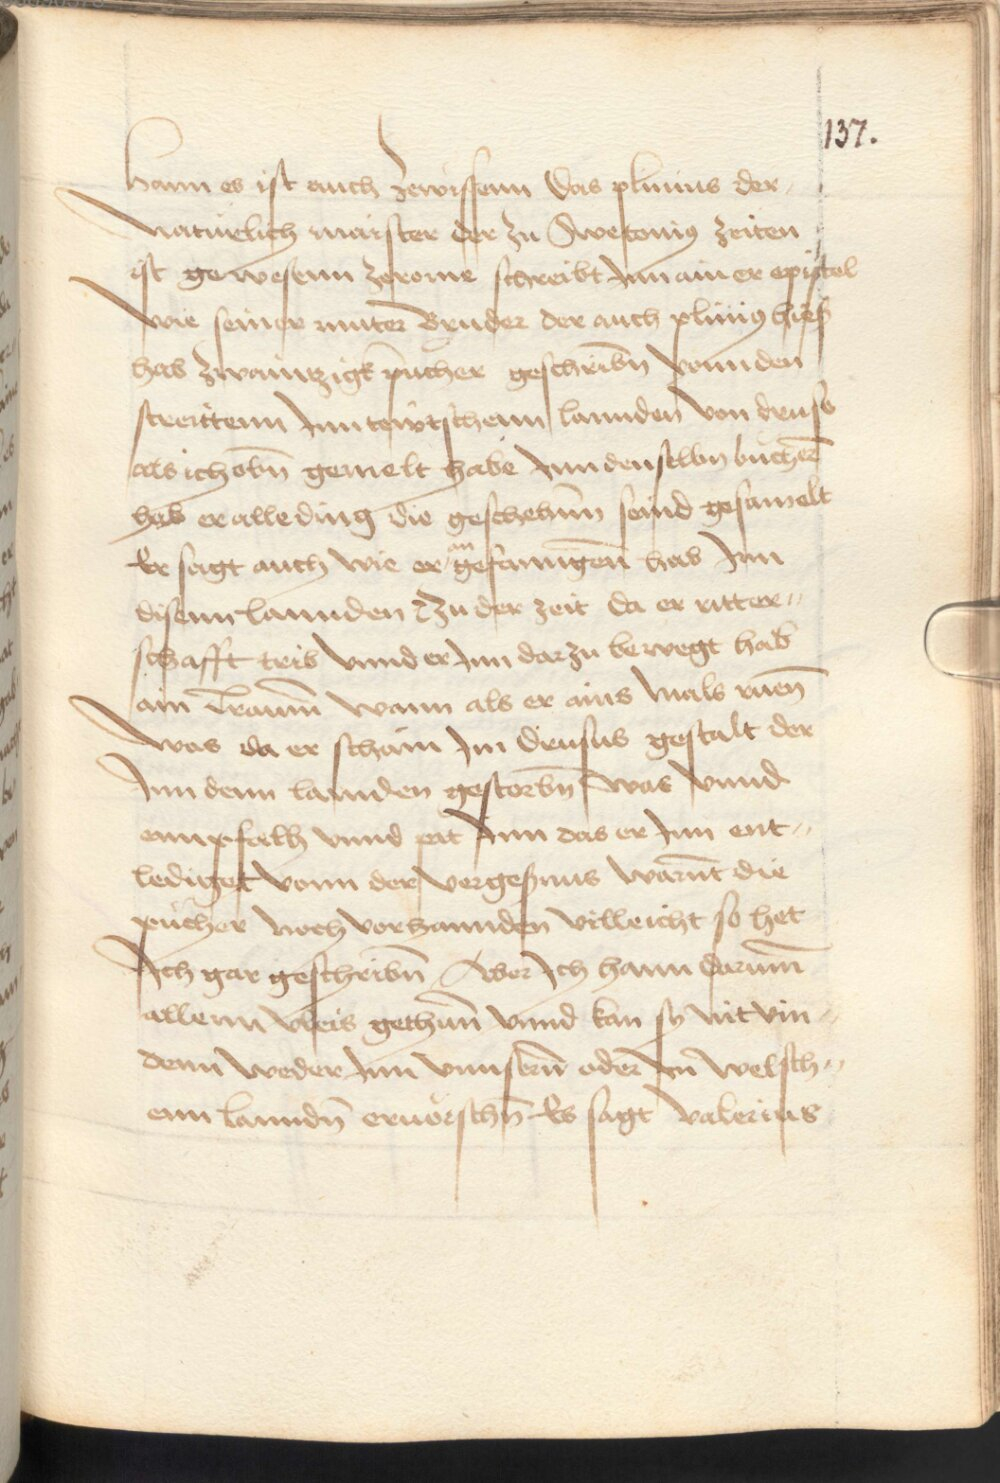 137.
hann es ist auch zewissenn das plinius der
natürlich maister der zu Swetonius zeiten
ist gewesenn zerome schreibt Inn ainer epistel
wie seiner muter Bruder der auch plinius hieß
hab zwaintzigk pucher geschribn vonn den
streittenn Inn tewtschenn lannden von druso
als ich obn gemelt habe Inn denselbn bucher
hab er alle ding die geschehnn seind gesamelt
Er sagt auch wie er angefanngen hab Inn
disenn lannden zu der zeit da er ritter-
schafft trib vnnd er Inn darzu bewegt hab
ain Traum wann als er ains mals ruen
was da er schain Im drusus gestalt der
Inn denn lannden gestorbn was vnnd
empfalh vnnd pat Inn das er Inn ent-
lediget vonn der vergessnus warnt die
pücher noch vorhannden villeicht so het
Ich gar geschribn Aber Ich hann darumb
allenn vleis gethann vnnd kan sy nit vin-
denn weder Inn vnnsern oder In welsch-
enn lanndn eruorschn Es sagt valerius